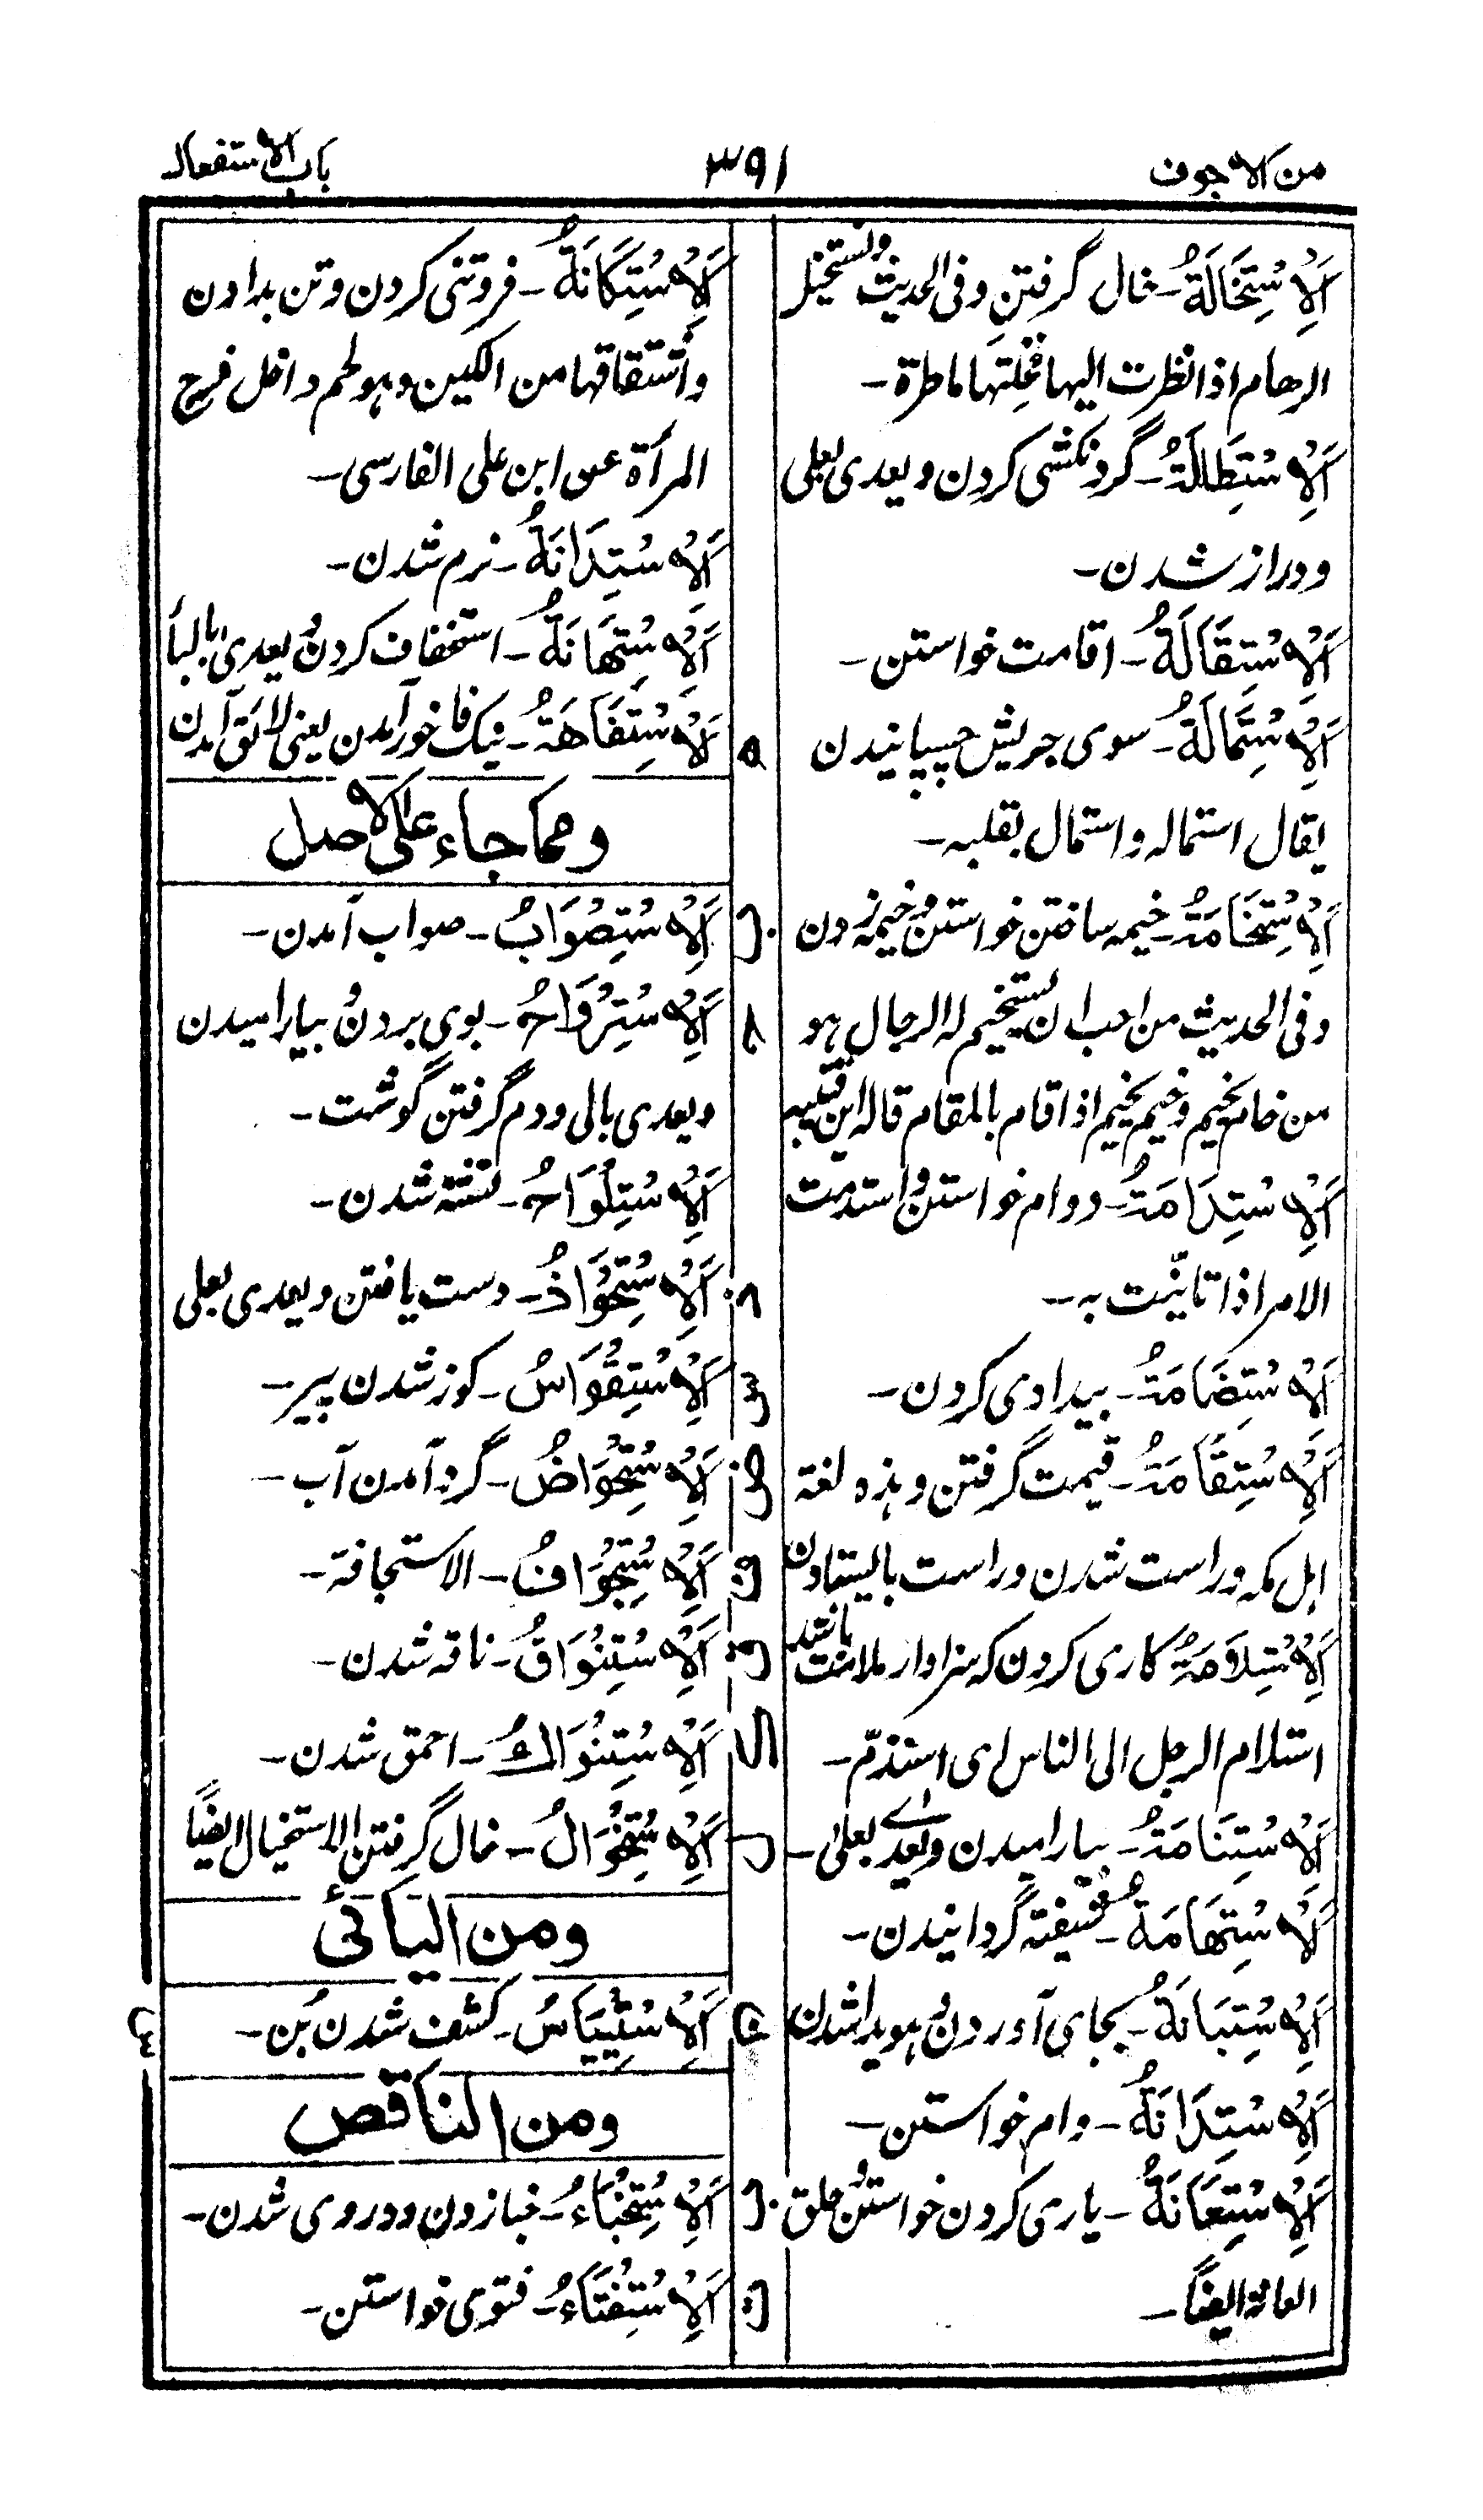 من الاجوف
٣٩١
باب الاستفعال
اَلْاِسْتِخَالَةُ - خال گرفتن وفی الحدیث ونستخیل
الرهام اذا نظرت الیها فخلتها ماطرة -
اَلْاِسْتِطَالَةُ - گردنکشی کردن ویعدی بعلی
ودراز شدن -
اَلْاِسْتِقَالَةُ - اقامت خواستن -
اَلْاِسْتِمَالَةُ - سوی خویش چسپانیدن
یقال استماله واستمال بقلبه -
اَلْاِسْتِخَامَةُ - خیمه ساختن خواستن وخیمه زدن
وفی الحدیث من احب ان یستخیم له الرجال هو
من خام یخیم وخیم یخیم اذا قام بالمقام قاله ابن قتیبه
اَلْاِسْتِدَامَةُ - دوام خواستن واستدمت
الامر اذا تانّیت به -
اَلْاِسْتِضَامَةُ - بیدادی کردن -
اَلْاِسْتِقَامَةُ - قیمت گرفتن وهذه لغة
اهل مکه وراست شدن وراست بایستادن
اَلْاِسْتِلَامَةُ کاری کردن که سزاوار ملامت باشد
استلام الرجل الی الناس ای استذمّ -
اَلْاِسْتِنَامَةُ - بیارامیدن ویعدی بعلی -
اَلْاِسْتِهَامَةُ - شیفته گردانیدن -
اَلْاِسْتِبَانَةُ - بجای آوردن وهویدا شدن
اَلْاِسْتِدَانَةُ - وام خواستن -
اَلْاِسْتِعَانَةُ - یاری کردن خواستن وحلق
العانة ایضًا -
اَلْاِسْتِكَانَةُ - فروتنی کردن وتن بدادن
واشتقاقها من الکین وهو لحم داخل فرج
المرأة عن ابن علی الفارسی -
اَلْاِسْتِدَانَةُ - نرم شدن -
اَلْاِسْتِهَانَةُ - استخفاف کردن ویعدی بالباء
ه اَلْاِسْتِفَاهَةُ - نیک فاخور آمدن یعنی لائق آمدن
ومما جاء علی الاصل
ب اَلْاِسْتِصْوَابُ - صواب آمدن -
ح اَلْاِسْتِرْوَاحُ - بوی بردن وبیارامیدن
ویعدی بالی ودم گرفتن گوشت -
اَلْاِسْتِلْوَاحُ - تشنه شدن -
ذ اَلْاِسْتِحْوَاذُ - دست یافتن ویعدی بعلی
س اَلْاِسْتِقْوَاسُ - کوز شدن پیر -
ض اَلْاِسْتِحْوَاضُ - گرد آمدن آب -
ف اَلْاِسْتِجْوَافُ - الاستجافة -
ق اَلْاِسْتِنْوَاقُ - ناقه شدن -
ک اَلْاِسْتِنْوَاكُ - احمق شدن -
ل اَلْاِسْتِخْوَالُ - خال گرفتن والاستخیال ایضًا
ومن الیائی
اَلْاِسْتِتْيَاسُ - کشف شدن بُن -
ومن الناقص
ب اَلْاِسْتِخْبَاءُ - خبا زدن ودر وی شدن -
ت اَلْاِسْتِفْتَاءُ - فتوی خواستن -